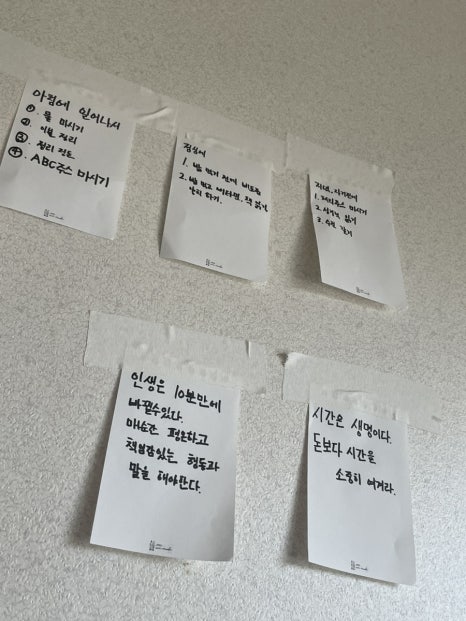 아침에 일어나서
①. 물 마시기
②. 이불 정리
③. 정리 정돈
④. ABC주스 마시기
점심에
1. 밥 먹기 전에 비트밥
2. 밥 먹고 비타민, 책 읽기
하기.
저녁, 자기전에
1. 마시기
2. 읽기
3. 수면
인생은 10분만에
바뀔수있다.
매순간 평온하고
책임감있는 행동과
말을 해야한다.
시간은 생명이다.
돈보다 시간을
소중히 여겨라.